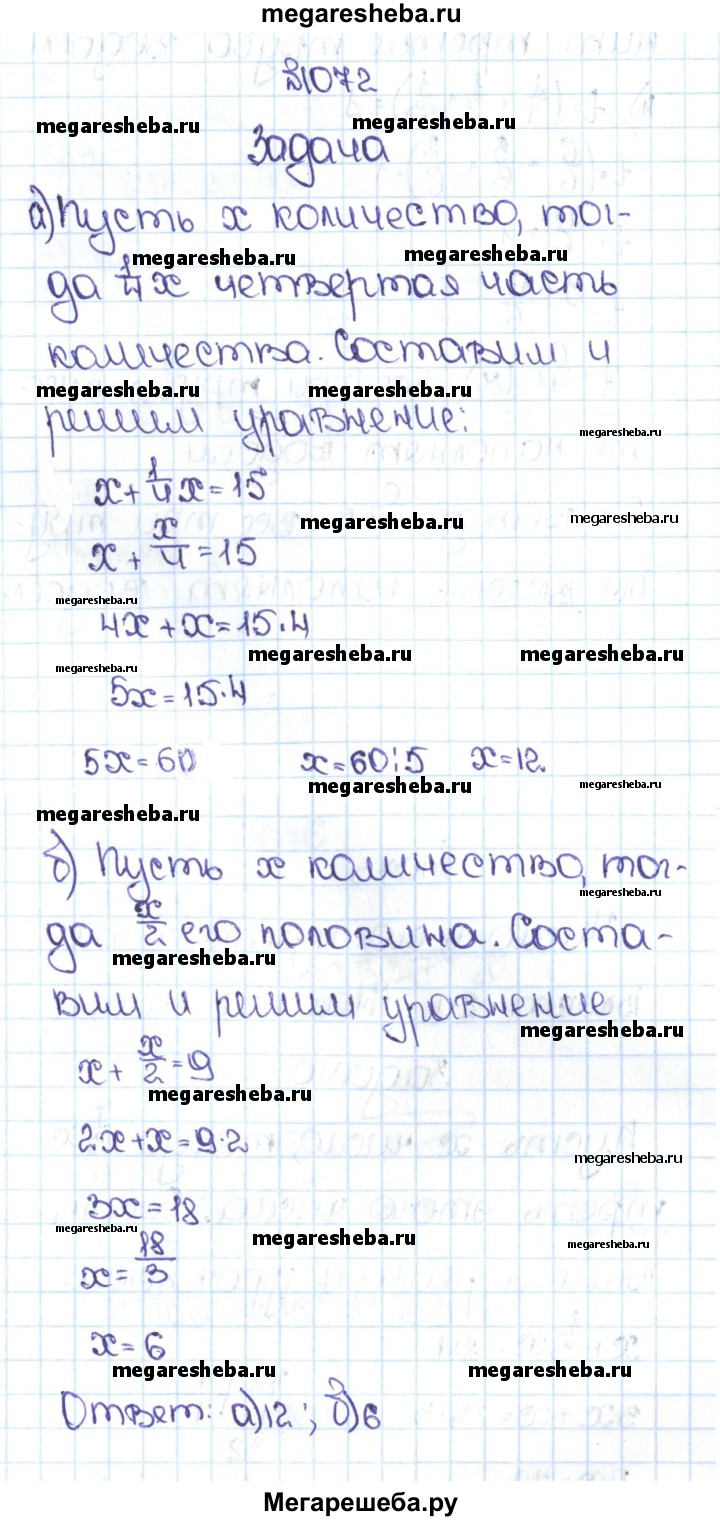 megaresheba.ru
№1072
megaresheba.ru
megaresheba.ru
Задача
а) Пусть x количество, тог-
megaresheba.ru
megaresheba.ru
да 1/4 x четвертая часть
количества. Составим и
megaresheba.ru
megaresheba.ru
решим уравнение:
megaresheba.ru
x + 1/4 x = 15
megaresheba.ru
megaresheba.ru
x + x/4 = 15
megaresheba.ru
4x + x = 15·4
megaresheba.ru
megaresheba.ru
megaresheba.ru
5x = 15·4
5x = 60 x = 60:5 x = 12.
megaresheba.ru
megaresheba.ru
megaresheba.ru
б) Пусть x количество, тог-
megaresheba.ru
да x/2 его половина. Соста-
megaresheba.ru
вим и решим уравнение
megaresheba.ru
x + x/2 = 9
megaresheba.ru
2x + x = 9·2
megaresheba.ru
3x = 18
megaresheba.ru
megaresheba.ru
megaresheba.ru
x = 18/3
x = 6
megaresheba.ru
megaresheba.ru
Ответ: а) 12 ; б) 6
Мегарешеба.ру